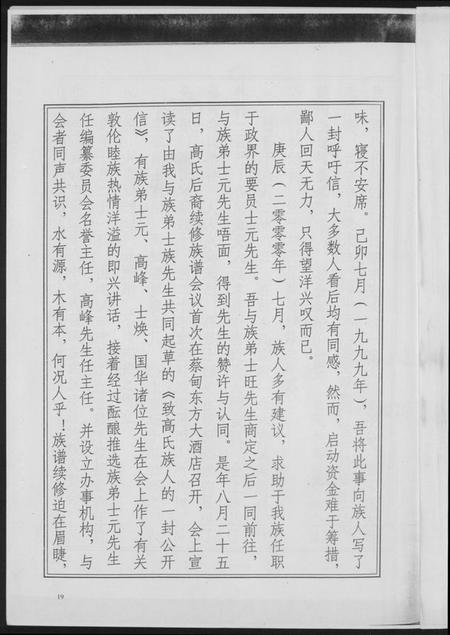 味，寝不安席。己卯七月（一九九九年），吾将此事向族人写了
一封呼吁信，大多数人看后均有同感，然而，启动资金难于筹措，
鄙人回天无力，只得望洋兴叹而已。
庚辰（二零零零年）七月，族人多有建议，求助于我族任职
于政界的要员士元先生。吾与族弟士旺先生商定之后一同前往，
与族弟士元先生唔面，得到先生的赞许与认同。是年八月二十五
日，高氏后裔续修族谱会议首次在蔡甸东方大酒店召开，会上宣
读了由我与族弟士族先生共同起草的《致高氏族人的一封公开
信》，有族弟士元、高峰、士焕、国华诸位先生在会上作了有关
敦伦睦族热情洋溢的即兴讲话，接着经过酝酿推选族弟士元先生
任编纂委员会名誉主任，高峰先生任主任。并设立办事机构，与
会者同声共识，水有源，木有本，何况人乎！族谱续修迫在眉睫，
19